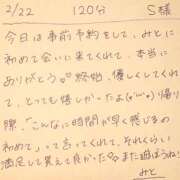 2/22 120分 S様
今日は事前予約をして、みとに
初めて会いに来てくれて、本当に
ありがとう♡ 終始、優しくしてくれ
て、とっても嬉しかったよ(*´`*)! 帰り
際、「こんなに時間が早く感じるの
初めて」って言ってくれて、それくらい
満足して貰えて良かった♡また遊ぼうね!
みと